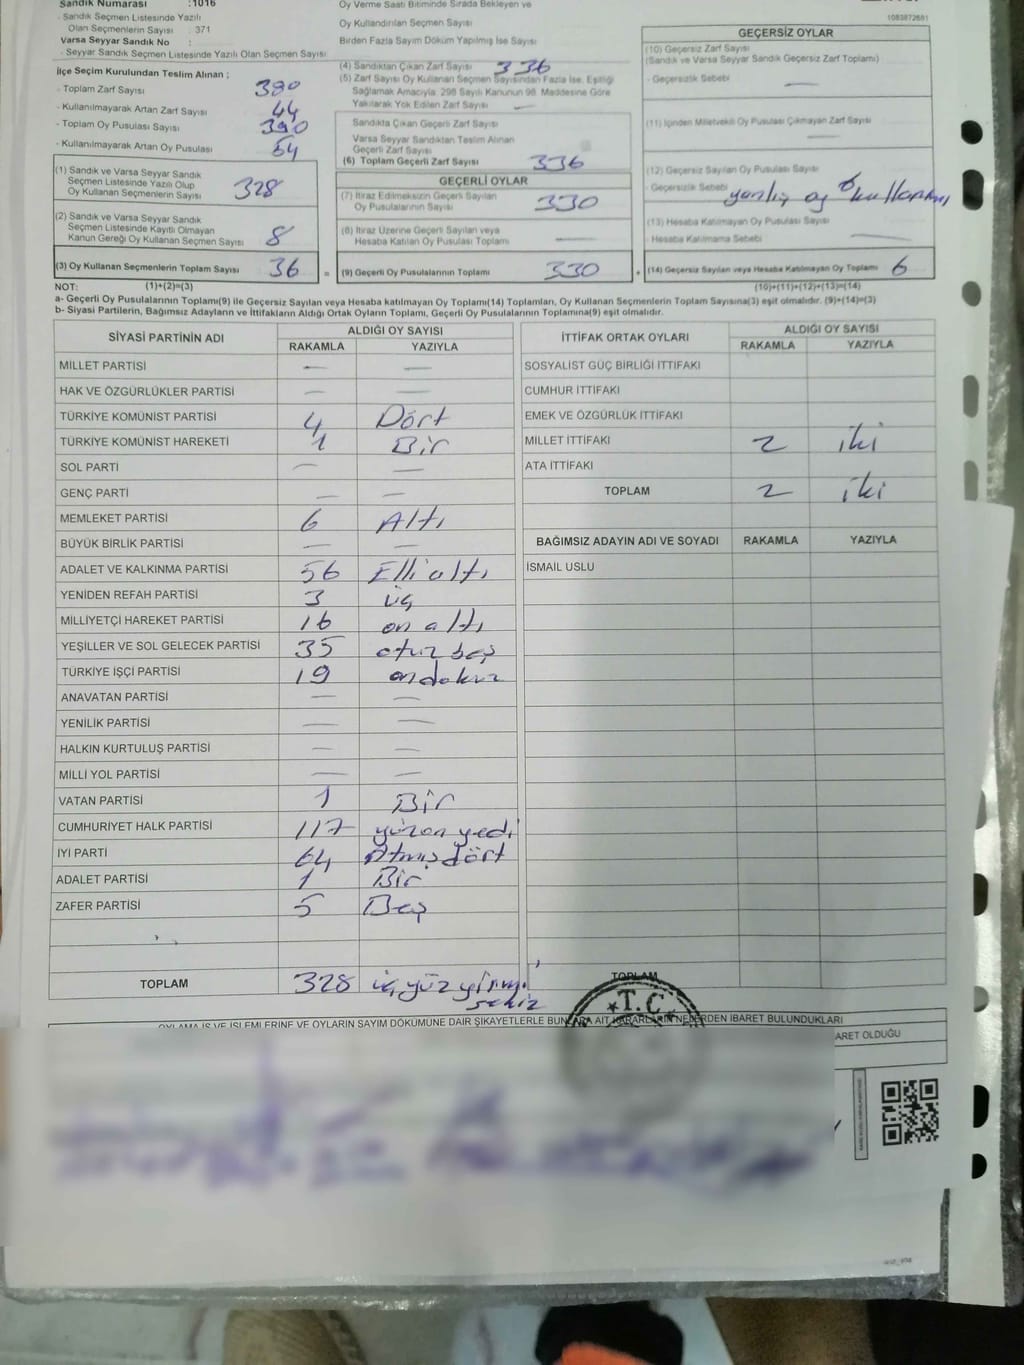 Sandık Numarası :1016
- Sandık Seçmen Listesinde Yazılı
Olan Seçmenlerin Sayısı : 371
Varsa Seyyar Sandık No :
- Seyyar Sandık Seçmen Listesinde Yazılı Olan Seçmen Sayısı
İlçe Seçim Kurulundan Teslim Alınan ;
- Toplam Zarf Sayısı 390
- Kullanılmayarak Artan Zarf Sayısı 44
- Toplam Oy Pusulası Sayısı 390
- Kullanılmayarak Artan Oy Pusulası 54
(1) Sandık ve Varsa Seyyar Sandık
Seçmen Listesinde Yazılı Olup
Oy Kullanan Seçmenlerin Sayısı 328
(2) Sandık ve Varsa Seyyar Sandık
Seçmen Listesinde Kayıtlı Olmayan
Kanun Gereği Oy Kullanan Seçmen Sayısı 8
(3) Oy Kullanan Seçmenlerin Toplam Sayısı 36 =
Oy Verme Saati Bitiminde Sırada Bekleyen ve
Oy Kullandırılan Seçmen Sayısı
Birden Fazla Sayım Döküm Yapılmış İse Sayısı
(4) Sandıktan Çıkan Zarf Sayısı 336
(5) Zarf Sayısı Oy Kullanan Seçmen Sayısından Fazla İse, Eşitliği
Sağlamak Amacıyla, 298 Sayılı Kanunun 98. Maddesine Göre
Yakılarak Yok Edilen Zarf Sayısı —
Sandıkta Çıkan Geçerli Zarf Sayısı
Varsa Seyyar Sandıktan Teslim Alınan
Geçerli Zarf Sayısı
(6) Toplam Geçerli Zarf Sayısı 336
GEÇERLİ OYLAR
(7) İtiraz Edilmeksizin Geçerli Sayılan
Oy Pusulalarının Sayısı 330
(8) İtiraz Üzerine Geçerli Sayılan veya
Hesaba Katılan Oy Pusulası Toplamı —
(9) Geçerli Oy Pusulalarının Toplamı 330 +
1083872681
GEÇERSİZ OYLAR
(10) Geçersiz Zarf Sayısı
(Sandık ve Varsa Seyyar Sandık Geçersiz Zarf Toplamı)
- Geçersizlik Sebebi —
(11) İçinden Milletvekili Oy Pusulası Çıkmayan Zarf Sayısı
—
(12) Geçersiz Sayılan Oy Pusulası Sayısı 6
- Geçersizlik Sebebi yanlış oy kullanımı
(13) Hesaba Katılmayan Oy Pusulası Sayısı
- Hesaba Katılmama Sebebi —
(14) Geçersiz Sayılan veya Hesaba Katılmayan Oy Toplamı 6
NOT: (1)+(2)=(3) (10)+(11)+(12)+(13)=(14)
a- Geçerli Oy Pusulalarının Toplamı(9) ile Geçersiz Sayılan veya Hesaba katılmayan Oy Toplamı(14) Toplamları, Oy Kullanan Seçmenlerin Toplam Sayısına(3) eşit olmalıdır. (9)+(14)=(3)
b- Siyasi Partilerin, Bağımsız Adayların ve İttifakların Aldığı Ortak Oyların Toplamı, Geçerli Oy Pusulalarının Toplamına(9) eşit olmalıdır.
SİYASİ PARTİNİN ADI ALDIĞI OY SAYISI
RAKAMLA YAZIYLA
MİLLET PARTİSİ — —
HAK VE ÖZGÜRLÜKLER PARTİSİ — —
TÜRKİYE KOMÜNİST PARTİSİ 4 Dört
TÜRKİYE KOMÜNİST HAREKETİ 1 Bir
SOL PARTİ — —
GENÇ PARTİ — —
MEMLEKET PARTİSİ 6 Altı
BÜYÜK BİRLİK PARTİSİ — —
ADALET VE KALKINMA PARTİSİ 56 Elli altı
YENİDEN REFAH PARTİSİ 3 üç
MİLLİYETÇİ HAREKET PARTİSİ 16 on altı
YEŞİLLER VE SOL GELECEK PARTİSİ 35 otuz beş
TÜRKİYE İŞÇİ PARTİSİ 19 ondokuz
ANAVATAN PARTİSİ — —
YENİLİK PARTİSİ — —
HALKIN KURTULUŞ PARTİSİ — —
MİLLİ YOL PARTİSİ — —
VATAN PARTİSİ 1 Bir
CUMHURİYET HALK PARTİSİ 117 yüzon yedi
İYİ PARTİ 64 Atmış dört
ADALET PARTİSİ 1 Bir
ZAFER PARTİSİ 5 Beş
TOPLAM 328 üç yüz yirmi
sekiz
İTTİFAK ORTAK OYLARI ALDIĞI OY SAYISI
RAKAMLA YAZIYLA
SOSYALİST GÜÇ BİRLİĞİ İTTİFAKI
CUMHUR İTTİFAKI
EMEK VE ÖZGÜRLÜK İTTİFAKI
MİLLET İTTİFAKI 2 iki
ATA İTTİFAKI
TOPLAM 2 iki
BAĞIMSIZ ADAYIN ADI VE SOYADI RAKAMLA YAZIYLA
İSMAİL USLU
TOPLAM
T.C
OYLAMA İŞ VE İŞLEMLERİNE VE OYLARIN SAYIM DÖKÜMÜNE DAİR ŞİKAYETLERLE BUNLARA AİT KARARLARIN NELERDEN İBARET BULUNDUKLARI
ARET OLDUĞU